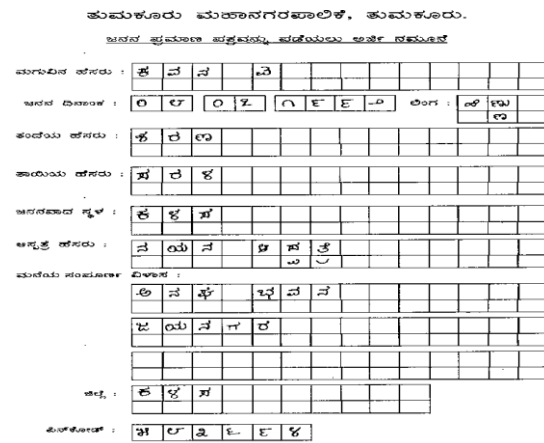 ತುಮಕೂರು ಮಹಾನಗರಪಾಲಿಕೆ, ತುಮಕೂರು.
ಜನನ ಪ್ರಮಾಣ ಪತ್ರವನ್ನು ಪಡೆಯಲು ಅರ್ಜಿ ನಮೂನೆ
ಮಗುವಿನ ಹೆಸರು : ಕ ವ ನ
ಜನನ ದಿನಾಂಕ : ೦ ೮ ೦ ೭ ೧ ೯ ೯ ಲಿಂಗ : ಹೆ ಣು
ಣ
ತಂದೆಯ ಹೆಸರು : ಶ ರ ಣ
ತಾಯಿಯ ಹೆಸರು : ಸ ರ ಳ
ಜನನವಾದ ಸ್ಥಳ : ಕ ಳ ಸ
ಆಸ್ಪತ್ರೆ ಹೆಸರು : ನ ಯ ನ ಆ ಸ ತ್ರೆ
ಮನೆಯ ಸಂಪೂರ್ಣ ವಿಳಾಸ :
ಅ ನ ಘ ಭ ವ ನ
ಜ ಯ ನ ಗ ರ
ಜಿಲ್ಲೆ : ಕ ಳ ಸ
ಪಿನ್‌ಕೋಡ್ : ೫ ೮ ೩ ೬ ೯ ೪